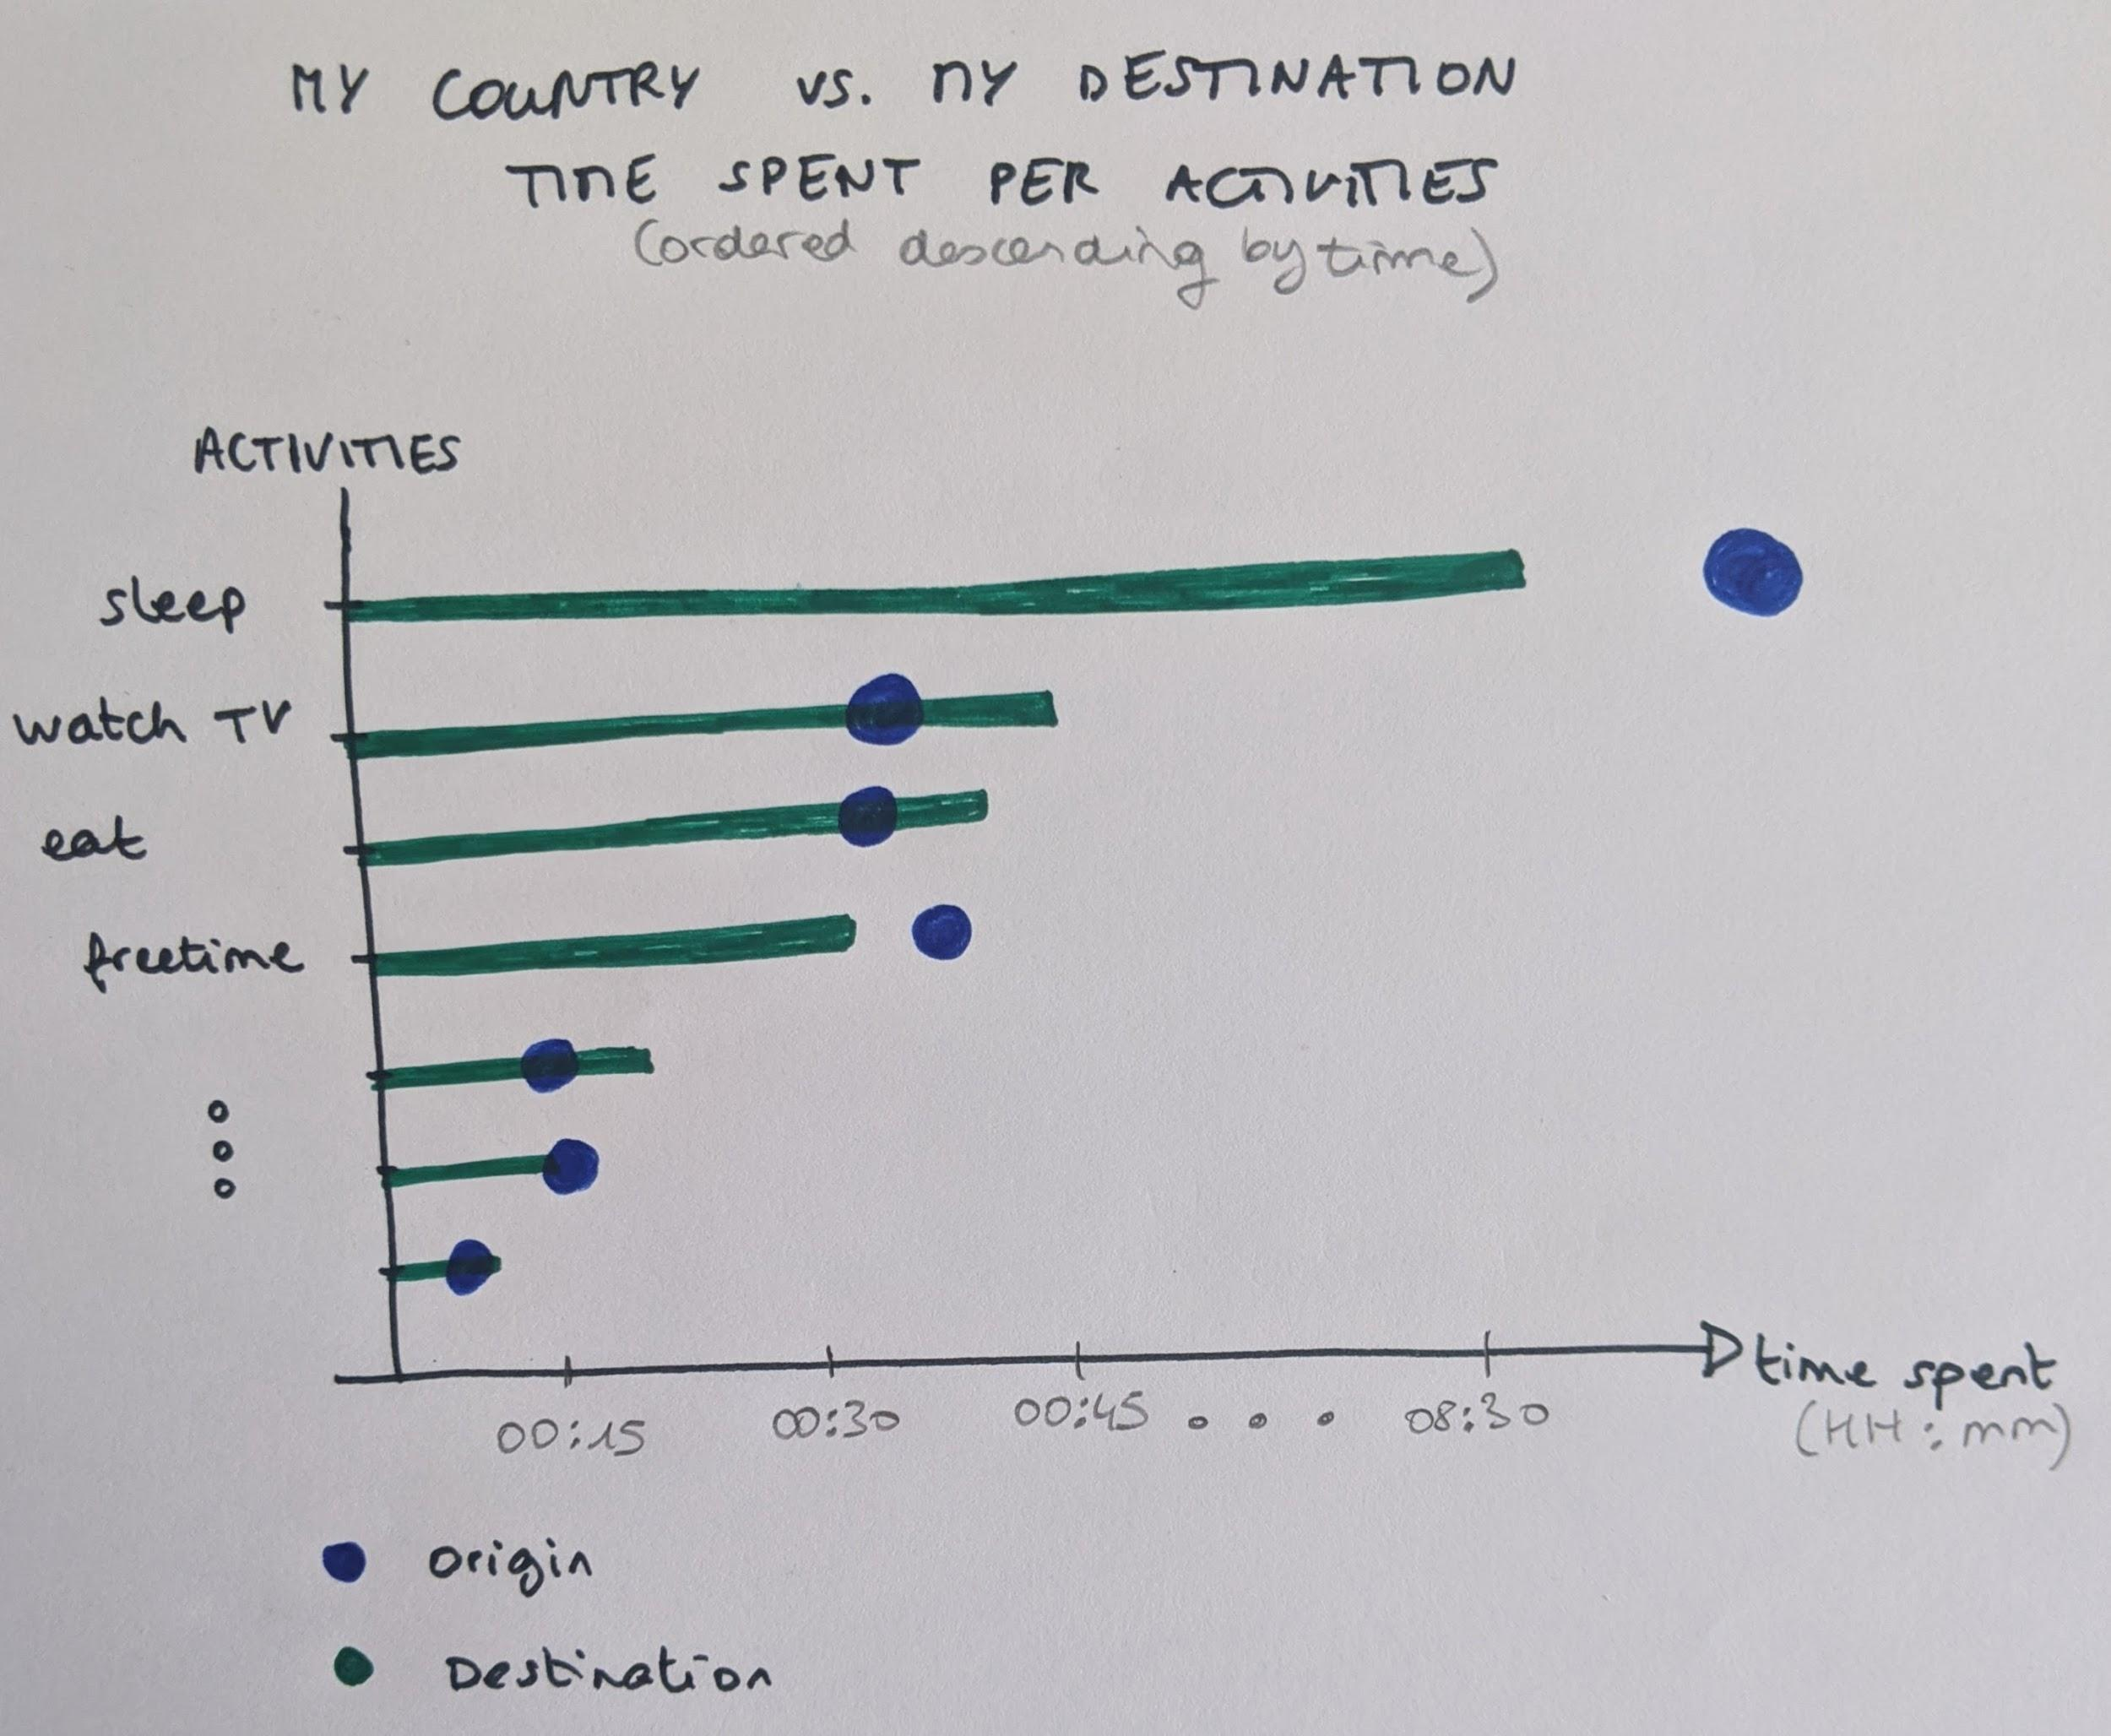 MY COUNTRY VS. MY DESTINATION
TIME SPENT PER ACTIVITIES
(ordered descending by time)
ACTIVITIES
sleep
watch TV
eat
freetime
00:15 00:30 00:45 . . . 08:30 time spent
(HH:mm)
Origin
Destination